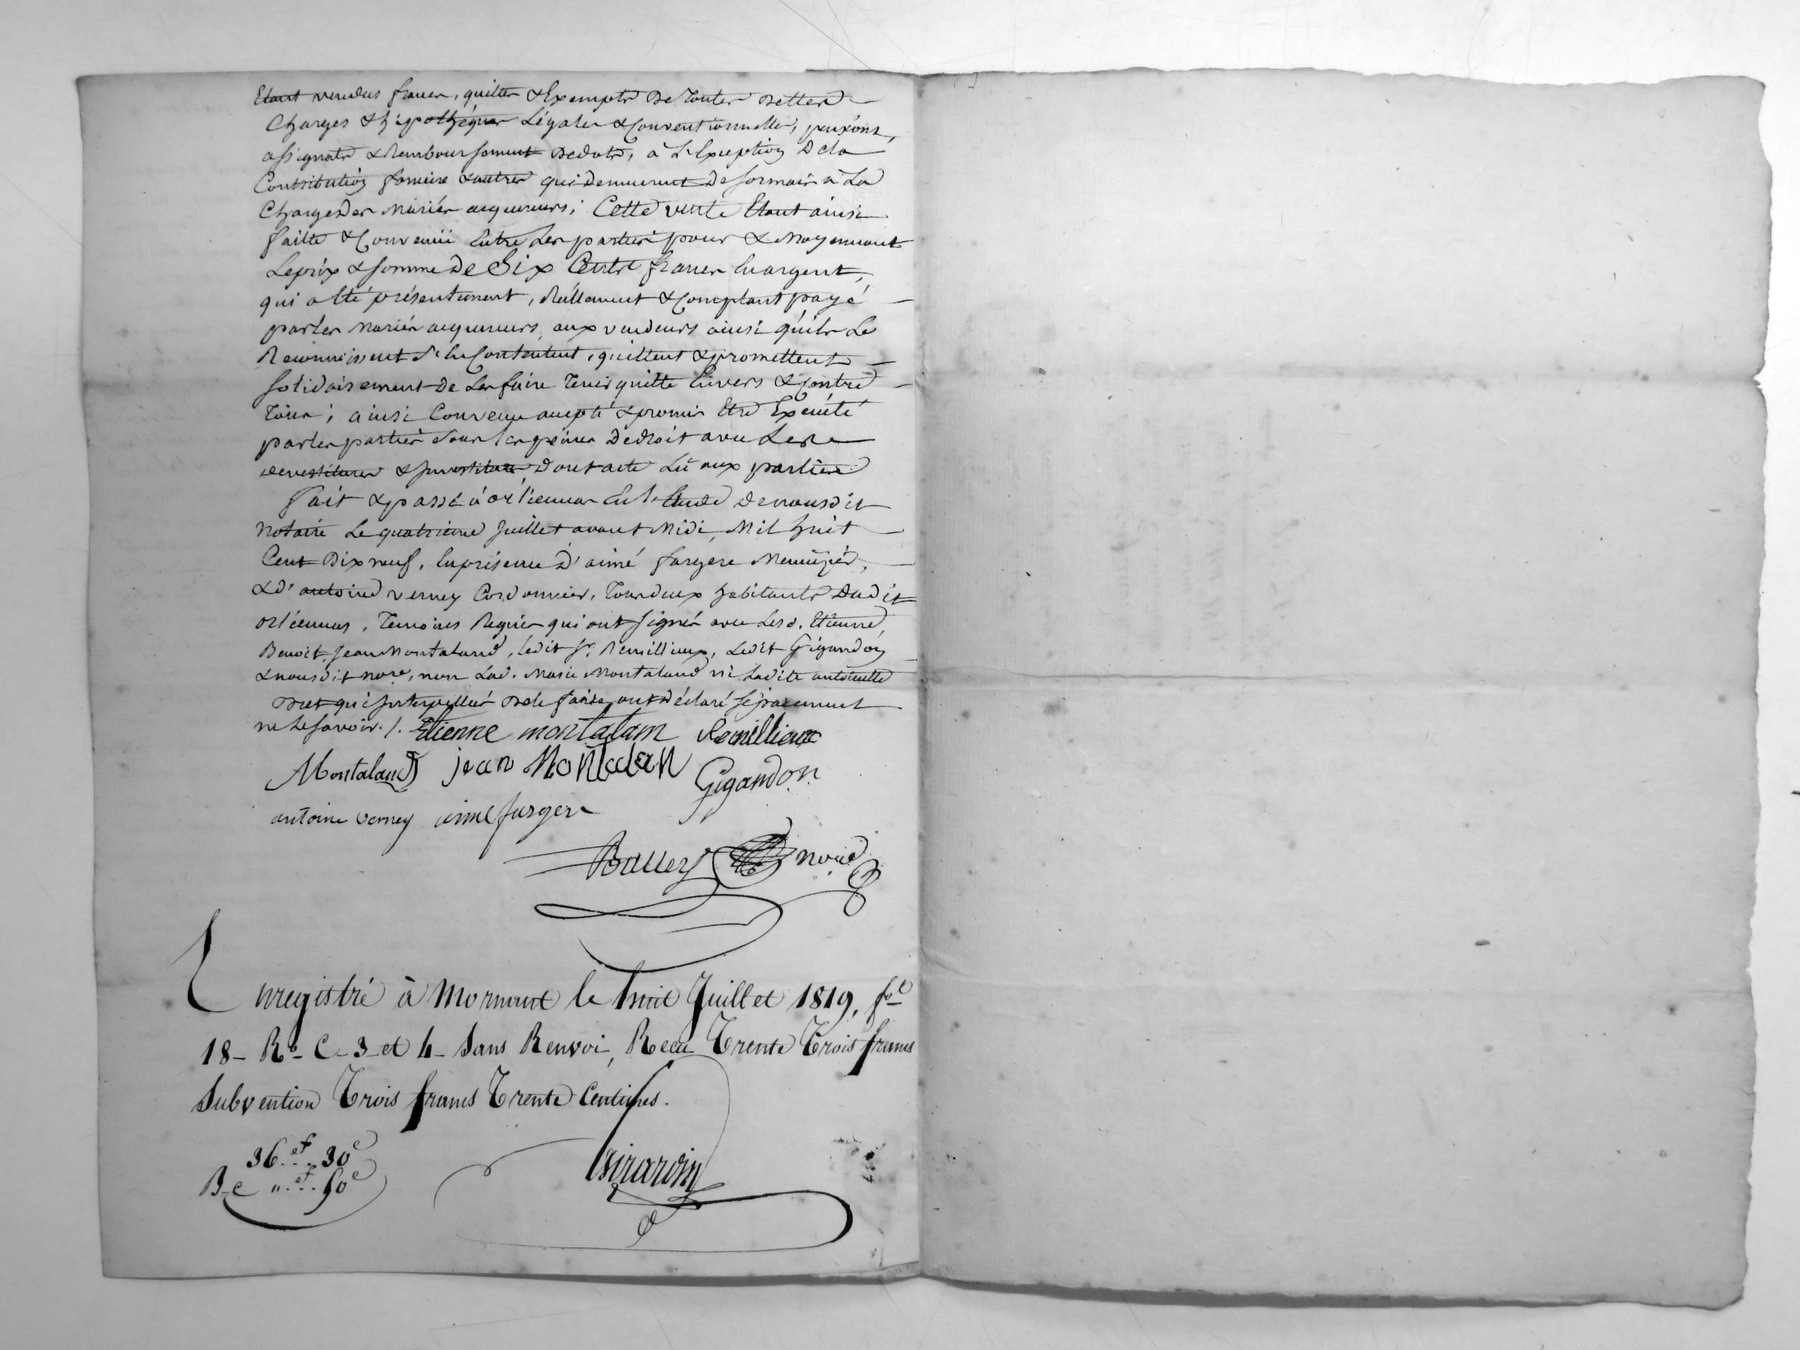 Etant vendus francs, quittes & Exempts de toutes dettes
Charges & hipothéques Légales & Conventionnelles, pensions,
assignats & Remboursement de dots, à L'Exception de la
Contribution fonciere & autres qui demeurent désormais à La
Charge des Mariés acquereurs; Cette vente Etant ainsi
faitte & Convenüe Entre Les parties pour & Moyennant
Le prix & somme de Six Cents francs En argent,
qui a Eté présentement, Réellement & Comptant payé
par les Mariés acquereurs, aux vendeurs ainsi qu'ils Le
Reconnoissent s'En Contentent, quittent & promettent
solidairement de Les faire tenir quitte Envers & Contre
tous; ainsi Convenu accepté & promis Etre Exécuté
par les parties sous Les peines de droit avec Les
devestitures & Investitures dont acte Lû aux parties
fait & passé à orliennas En l'Etude de nousdit
Notaire Le quatrieme Juillet avant Midi, Mil huit
Cent Dix neuf, En présence d'aimé fargere Menuisier,
& d'antoine verney Cordonnier, tous deux habitants dudit
orliennas, temoins Requis qui ont signés avec Lesd. Etienne
Benoit Jean Montaland, Ledit Sr. Remillieux, Ledit Gigandon
& nousdit nore, non Lad. Marie Montaland ni Ladite antoinette
qui Interpellés de le faire ont déclaré séparement
ne Le savoir ./. Etienne montalam Remillieux
Montaland jean Montalan Gigandon
antoine verney aimé fargere
nore
Enregistré à Mornant le huit Juillet 1819, fol
18 Ro C 3 et 4 Sans Renvoi, Reçu Trente Trois francs
Subvention Trois francs Trente Centimes.
36 et 30c
Girardin